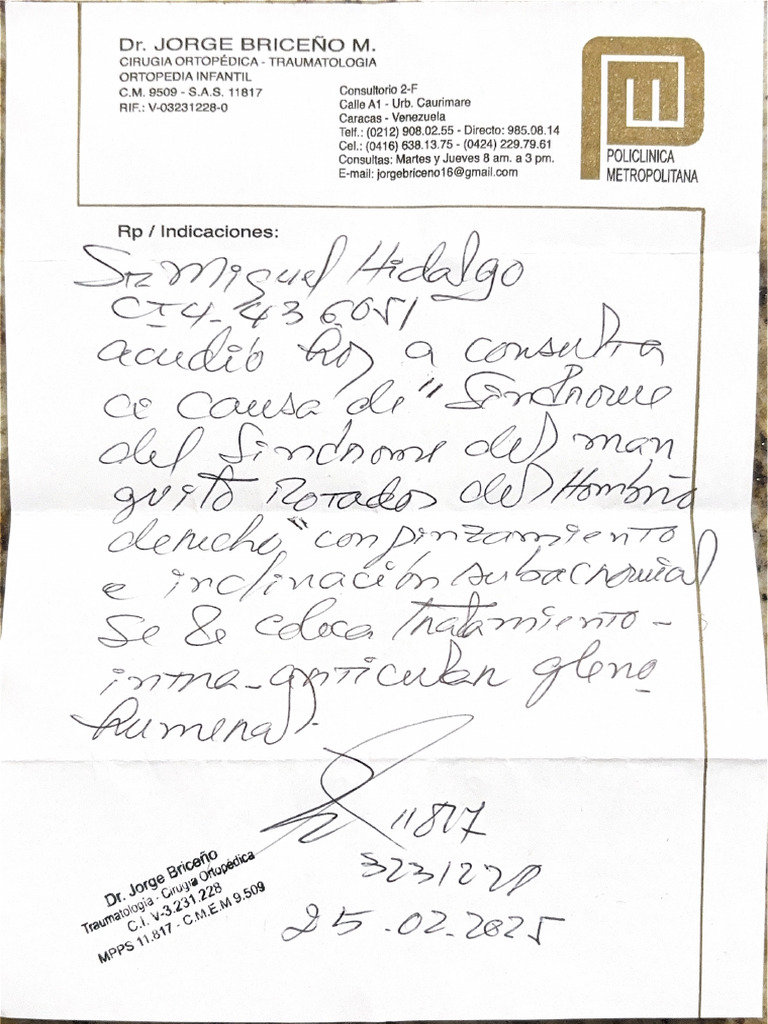 Dr. JORGE BRICEÑO M.
CIRUGIA ORTOPÉDICA - TRAUMATOLOGIA
ORTOPEDIA INFANTIL
C.M. 9509 - S.A.S. 11817
RIF.: V-03231228-0
Consultorio 2-F
Calle A1 - Urb. Caurimare
Caracas - Venezuela
Telf.: (0212) 908.02.55 - Directo: 985.08.14
Cel.: (0416) 638.13.75 - (0424) 229.79.61
Consultas: Martes y Jueves 8 am. a 3 pm.
E-mail: jorgebriceno16@gmail.com
POLICLINICA
METROPOLITANA
Rp / Indicaciones:
Sr. Miguel Hidalgo
acudió hoy a consulta
causa de "Síndrome
del Síndrome del man
guito Rotador del Hombro
derecho" con pinzamiento
e inclinación subacromial
Se le coloca Tratamiento -
intra-articular gleno
humeral.
11817
3231228
25.02.2025
Dr. Jorge Briceño
Traumatología - Cirugía Ortopédica
C.I. V-3.231.228
MPPS 11.817 - C.M.E.M 9.509